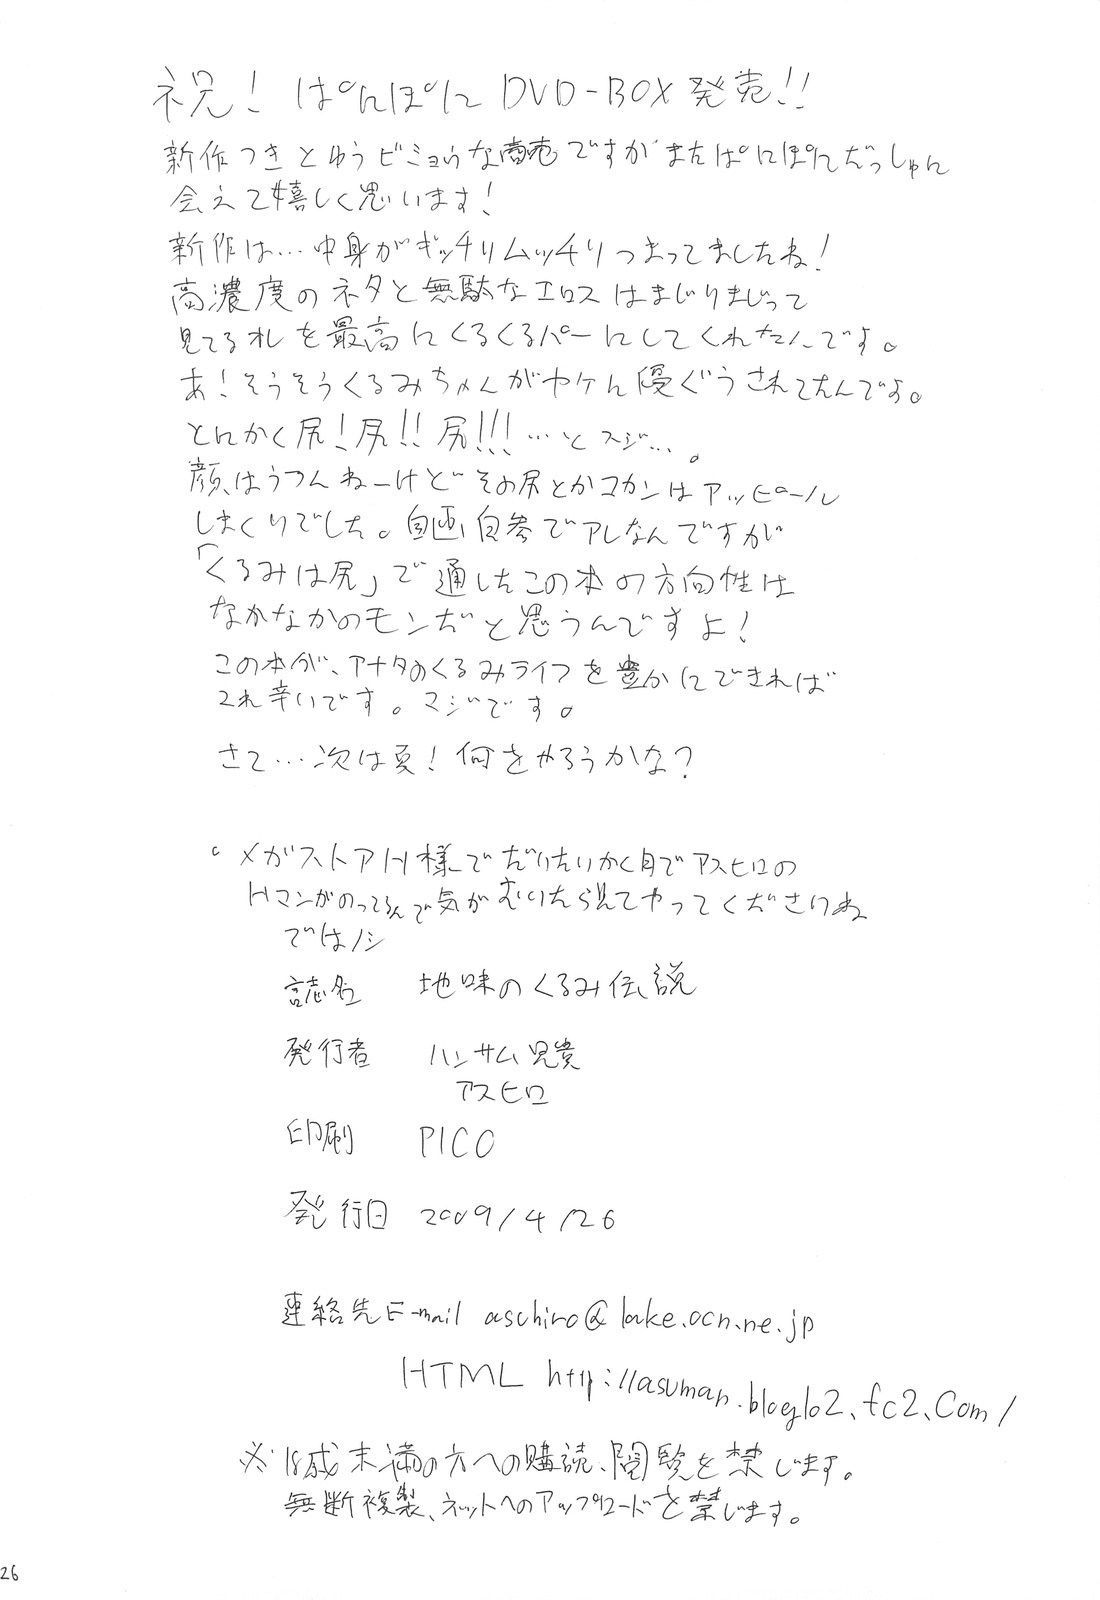 祝! ぱにぽに DVD-BOX 発売!!
新作つきとゆうビミョウな商売ですがまたぱにぽにだっしゅに
会えて嬉しく思います!
新作は…中身がギッチリムッチリつまってましたね!
高濃度のネタと無駄なエロスはまじりまじって
見てるオレを最高にくるくるパーにしてくれたんです。
あ!そうそうくるみちゃんがヤケに優ぐうされてたんですよ。
とにかく尻!尻!!尻!!!…とスジ…。
顔はうつんねーけどその尻とかコカンはアッピール
しまくりでした。自画自参でアレなんですが
「くるみは尻」で通したこの本の方向性は
なかなかのモンだと思うんですよ!
この本が、アナタのくるみライフを豊かにできれば
これ幸いです。マジです。
さて…次は夏!何をやろうかな?
。メガストアH様でだいたいかく月でアスヒロの
Hマンがのってるんで気がむいたら見てやってくださいね
ではノシ
誌名 地味のくるみ伝説
発行者 ハンサム兄貴
アスヒロ
印刷 PICO
発行日 2009/4/26
連絡先 E-mail aschiro@lake.ocn.ne.jp
HTML http://asuman.blog102.fc2.com/
※18歳未満の方への購読、閲覧を禁じます。
無断複製、ネットへのアップロードを禁じます。
26